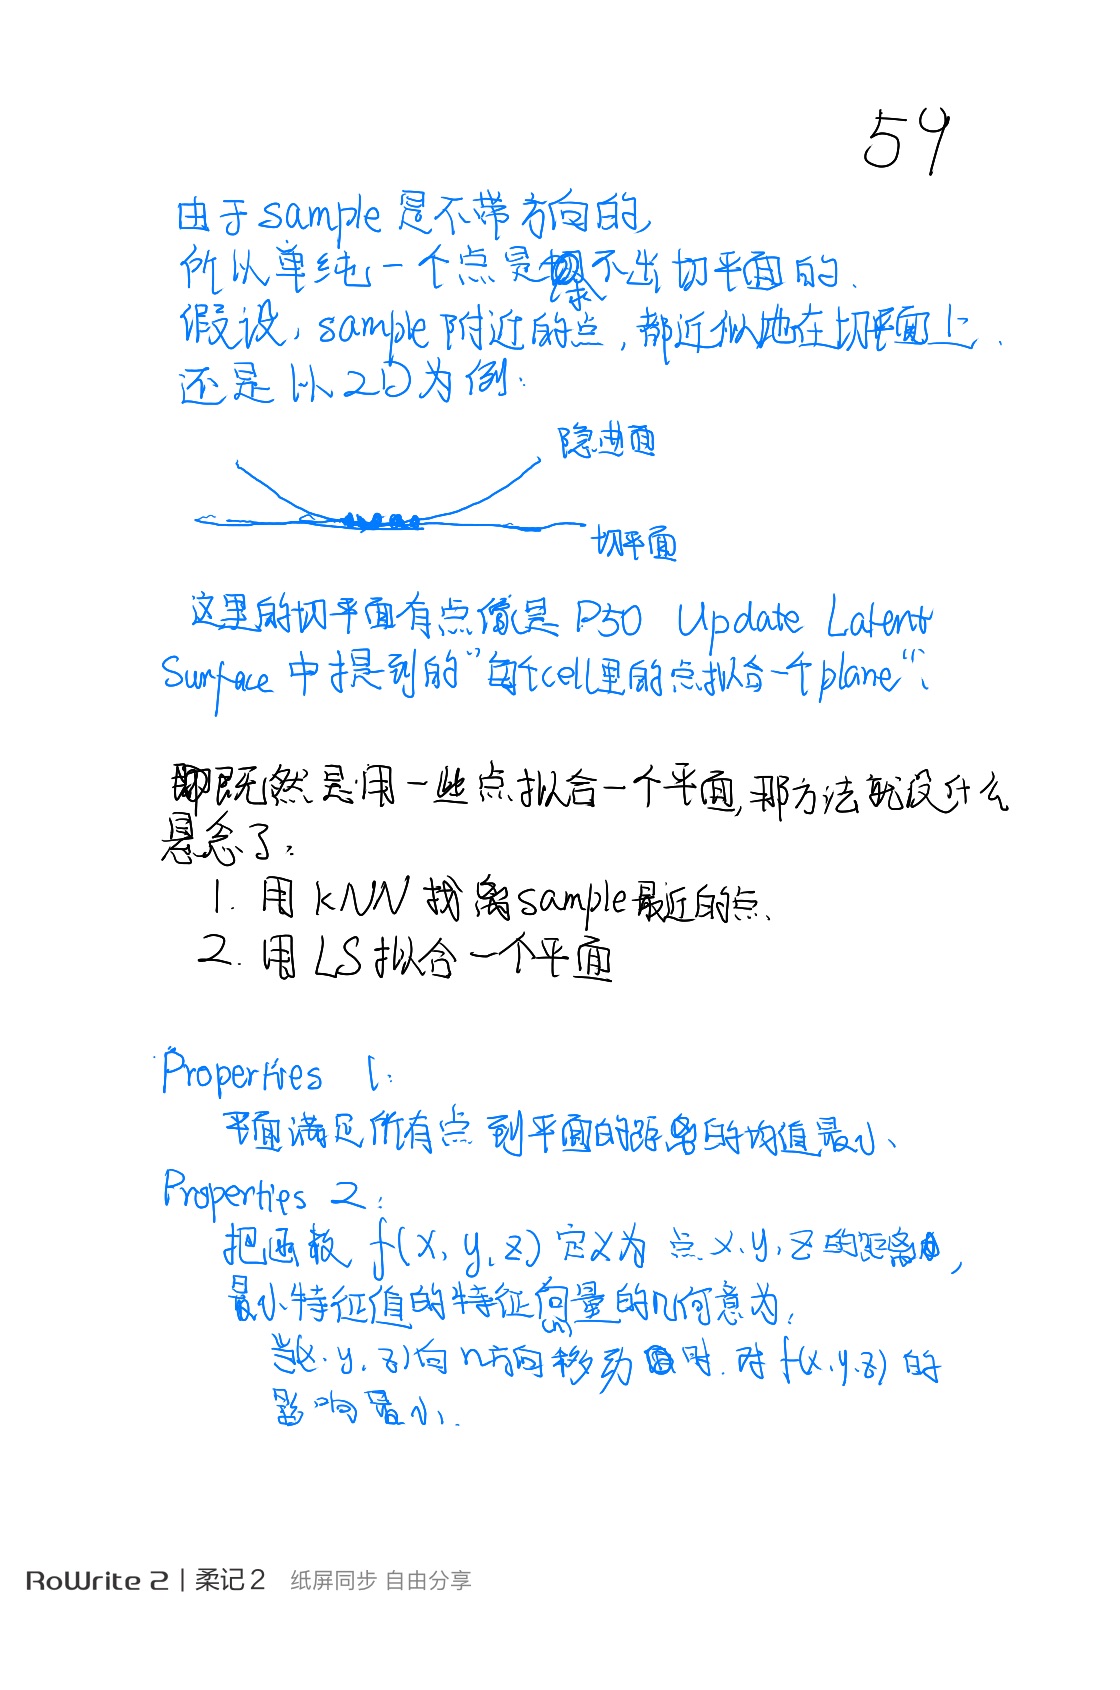 59
由于sample是不带方向的,
所以单纯一个点是求不出切平面的.
假设,sample附近的点,都近似地在切平面上.
还是以2D为例:
隐进面
切平面
这里的切平面有点像是 P50 Update Latent
Surface 中提到的“每个cell里的点拟合一个plane“.
既然是用一些点拟合一个平面,那方法就没什么
悬念了.
1. 用 kNN 找离sample最近的点.
2. 用 LS 拟合一个平面
Properties 1:
平面满足所有点到平面的距离的均值最小.
Properties 2:
把函数 f(x, y, z) 定义为 点 x, y, z 的距离,
最小特征值的特征向量的几何意为:
(n)
当(x, y, z)向n方向移动时. 对 f(x, y, z) 的
影响最小.
RoWrite 2 | 柔记 2 纸屏同步 自由分享